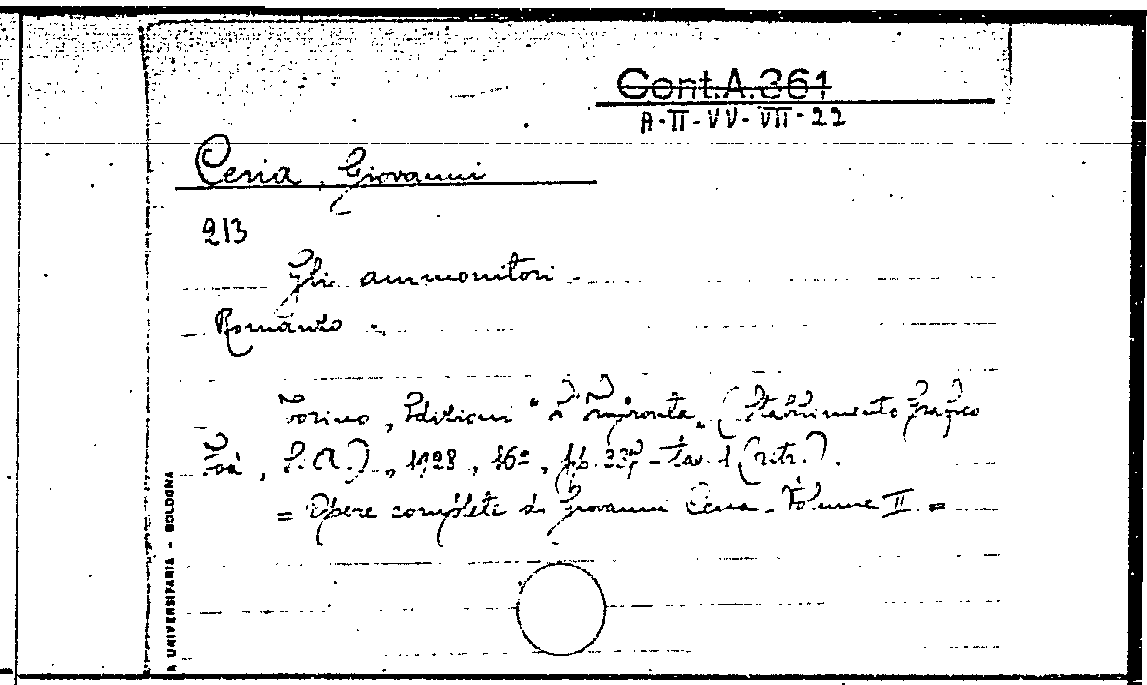 Cont.A.361
A-II-VV-VII-22
Cena, Giovanni
213
Gli ammonitori.
Romanzo.
Torino, Edizioni "L'Impronta" (Stabilimento Grafico
S.A.), 1928, 16º, pp. tav. 1 (ritr.).
= Opere complete di Giovanni Cena. Volume II =
A UNIVERSITARIA - BOLOGNA